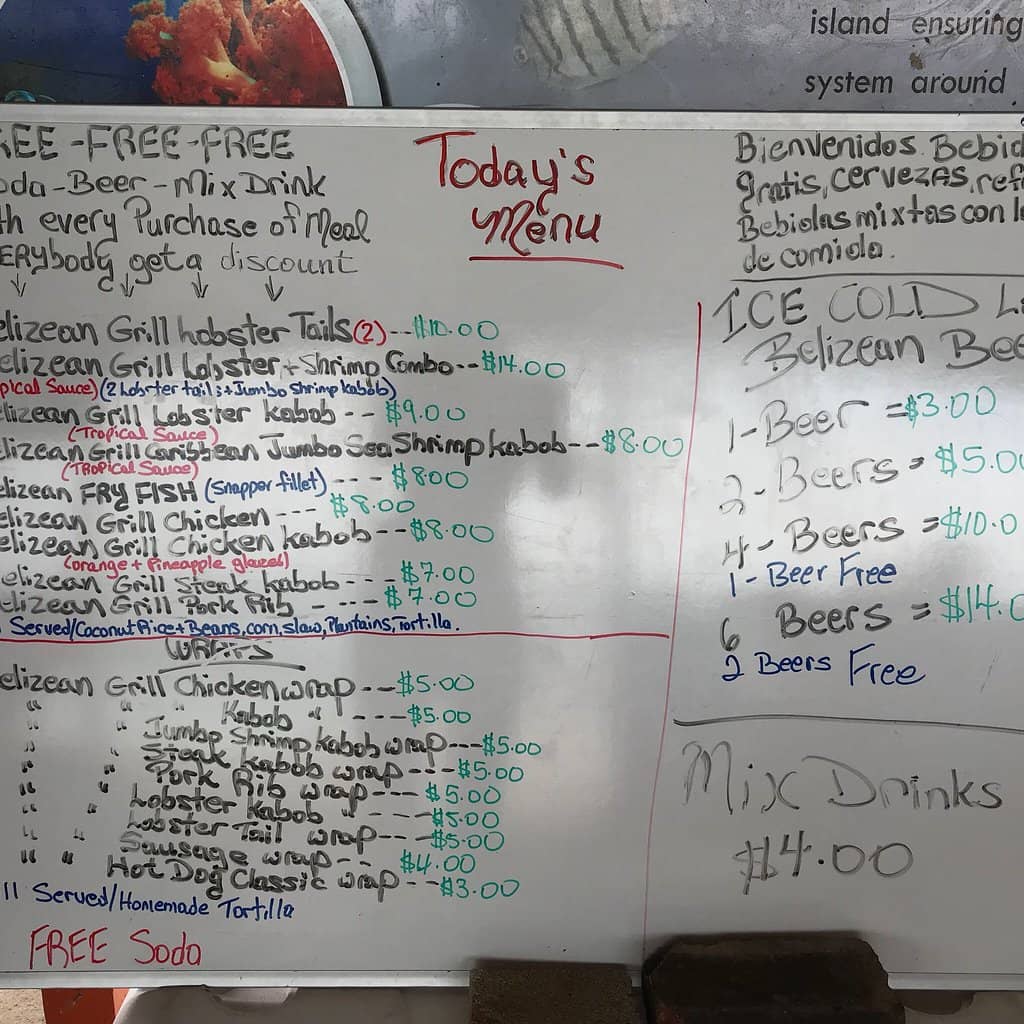 island ensuring
system around
EE-FREE-FREE
oda-Beer-Mix Drink
th every Purchase of Meal
ERYbody get a discount
Today's
Menu
elizean Grill Lobster Tails (2) -- $10.00
elizean Grill Lobster + Shrimp Combo -- $14.00
pical Sauce) (2 Lobster tails + Jumbo Shrimp kabob)
elizean Grill Lobster kabob -- $9.00
(Tropical Sauce)
elizean Grill Caribbean Jumbo Sea Shrimp kabob -- $8.00
(TROPical Sauce)
elizean FRY FISH (Snapper fillet) --- $8.00
elizean Grill Chicken --- $8.00
elizean Grill Chicken kabob -- $8.00
(orange + Pineapple glazed)
elizean Grill Steak kabob --- $7.00
elizean Grill Pork Rib - --- $7.00
Served/Coconut Rice + Beans, corn, slaw, Plantains, Tortilla.
WRAPS
elizean Grill Chicken wrap -- $5.00
" " " Kabob " ---- $5.00
" " Jumbo Shrimp kabob wrap --- $5.00
" " Steak kabob wrap --- $5.00
" " Pork Rib wrap --- $5.00
" " Lobster Kabob " --- $5.00
" " Lobster Tail wrap --- $5.00
" " Sausage wrap -- $4.00
Hot Dog Classic wrap -- $3.00
ll Served/Homemade Tortilla
FREE Soda
Bienvenidos. Bebid
gratis, cervezas, refr
Bebidas mixtas con l
de comida.
ICE COLD L
Belizean Bee
1-Beer = $3.00
2-Beers = $5.0
4-Beers = $10.0
1-Beer Free
6 Beers = $14.0
2 Beers Free
Mix Drinks
$4.00